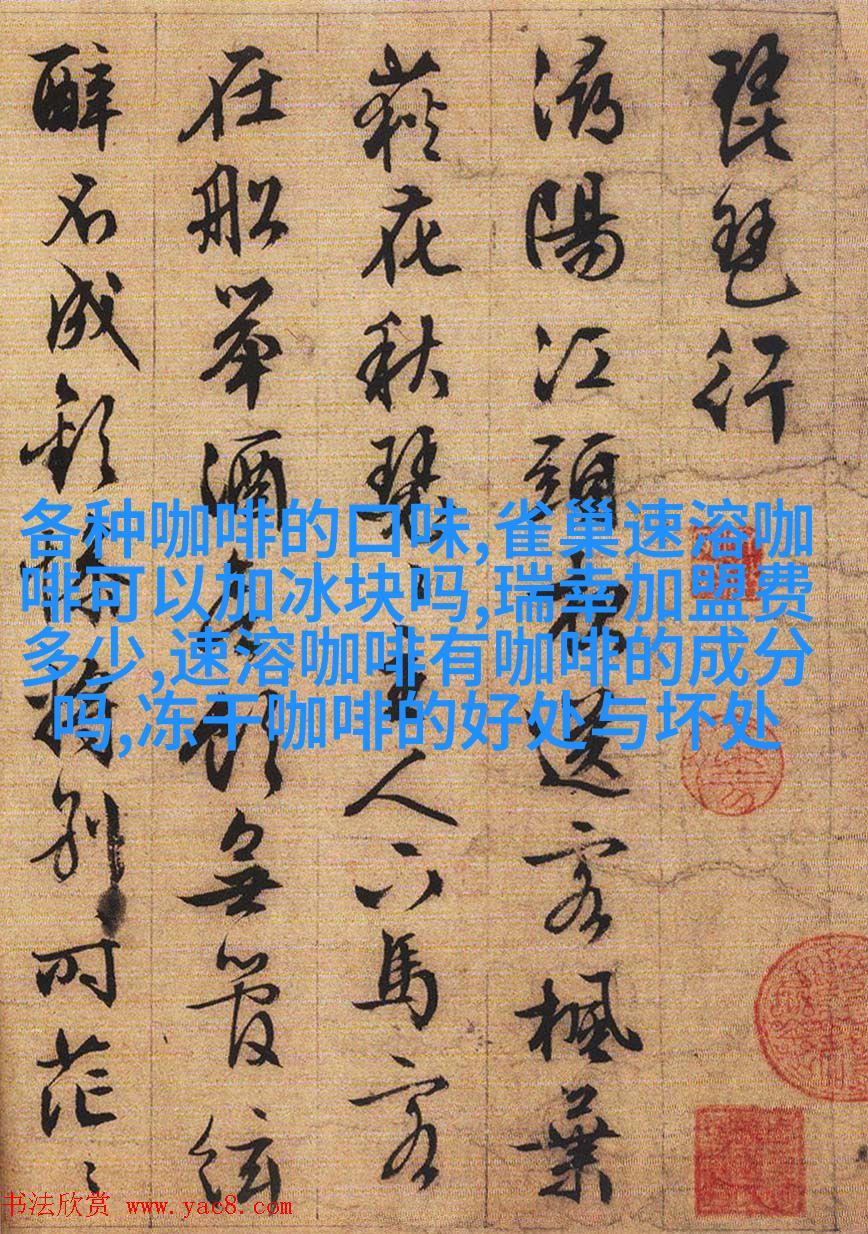 琵琶行
潯陽江頭夜送客楓葉
荻花秋瑟〻主人下馬客
在船舉酒欲飲無管絃
醉不成歡慘將別〻時茫〻
各种咖啡的口味,雀巢速溶咖
啡可以加冰块吗,瑞幸加盟费
多少,速溶咖啡有咖啡的成分
吗,冻干咖啡的好处与坏处
书法欣赏 www.yac8.com